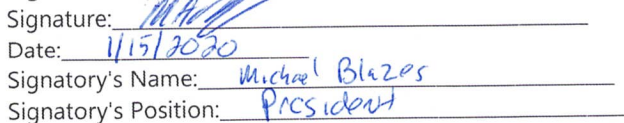 Signature:
Date: 1/15/2020
Signatory's Name: Michael Blazes
Signatory's Position: President